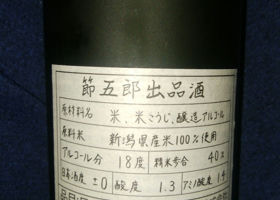 節五郎出品酒
原材料名 米、米こうじ、醸造アルコール
原料米 新潟県産米100%使用
アルコール分 18度 精米歩合 40%
日本酒度 ±0 酸度 1.3 アミノ酸度 1.4